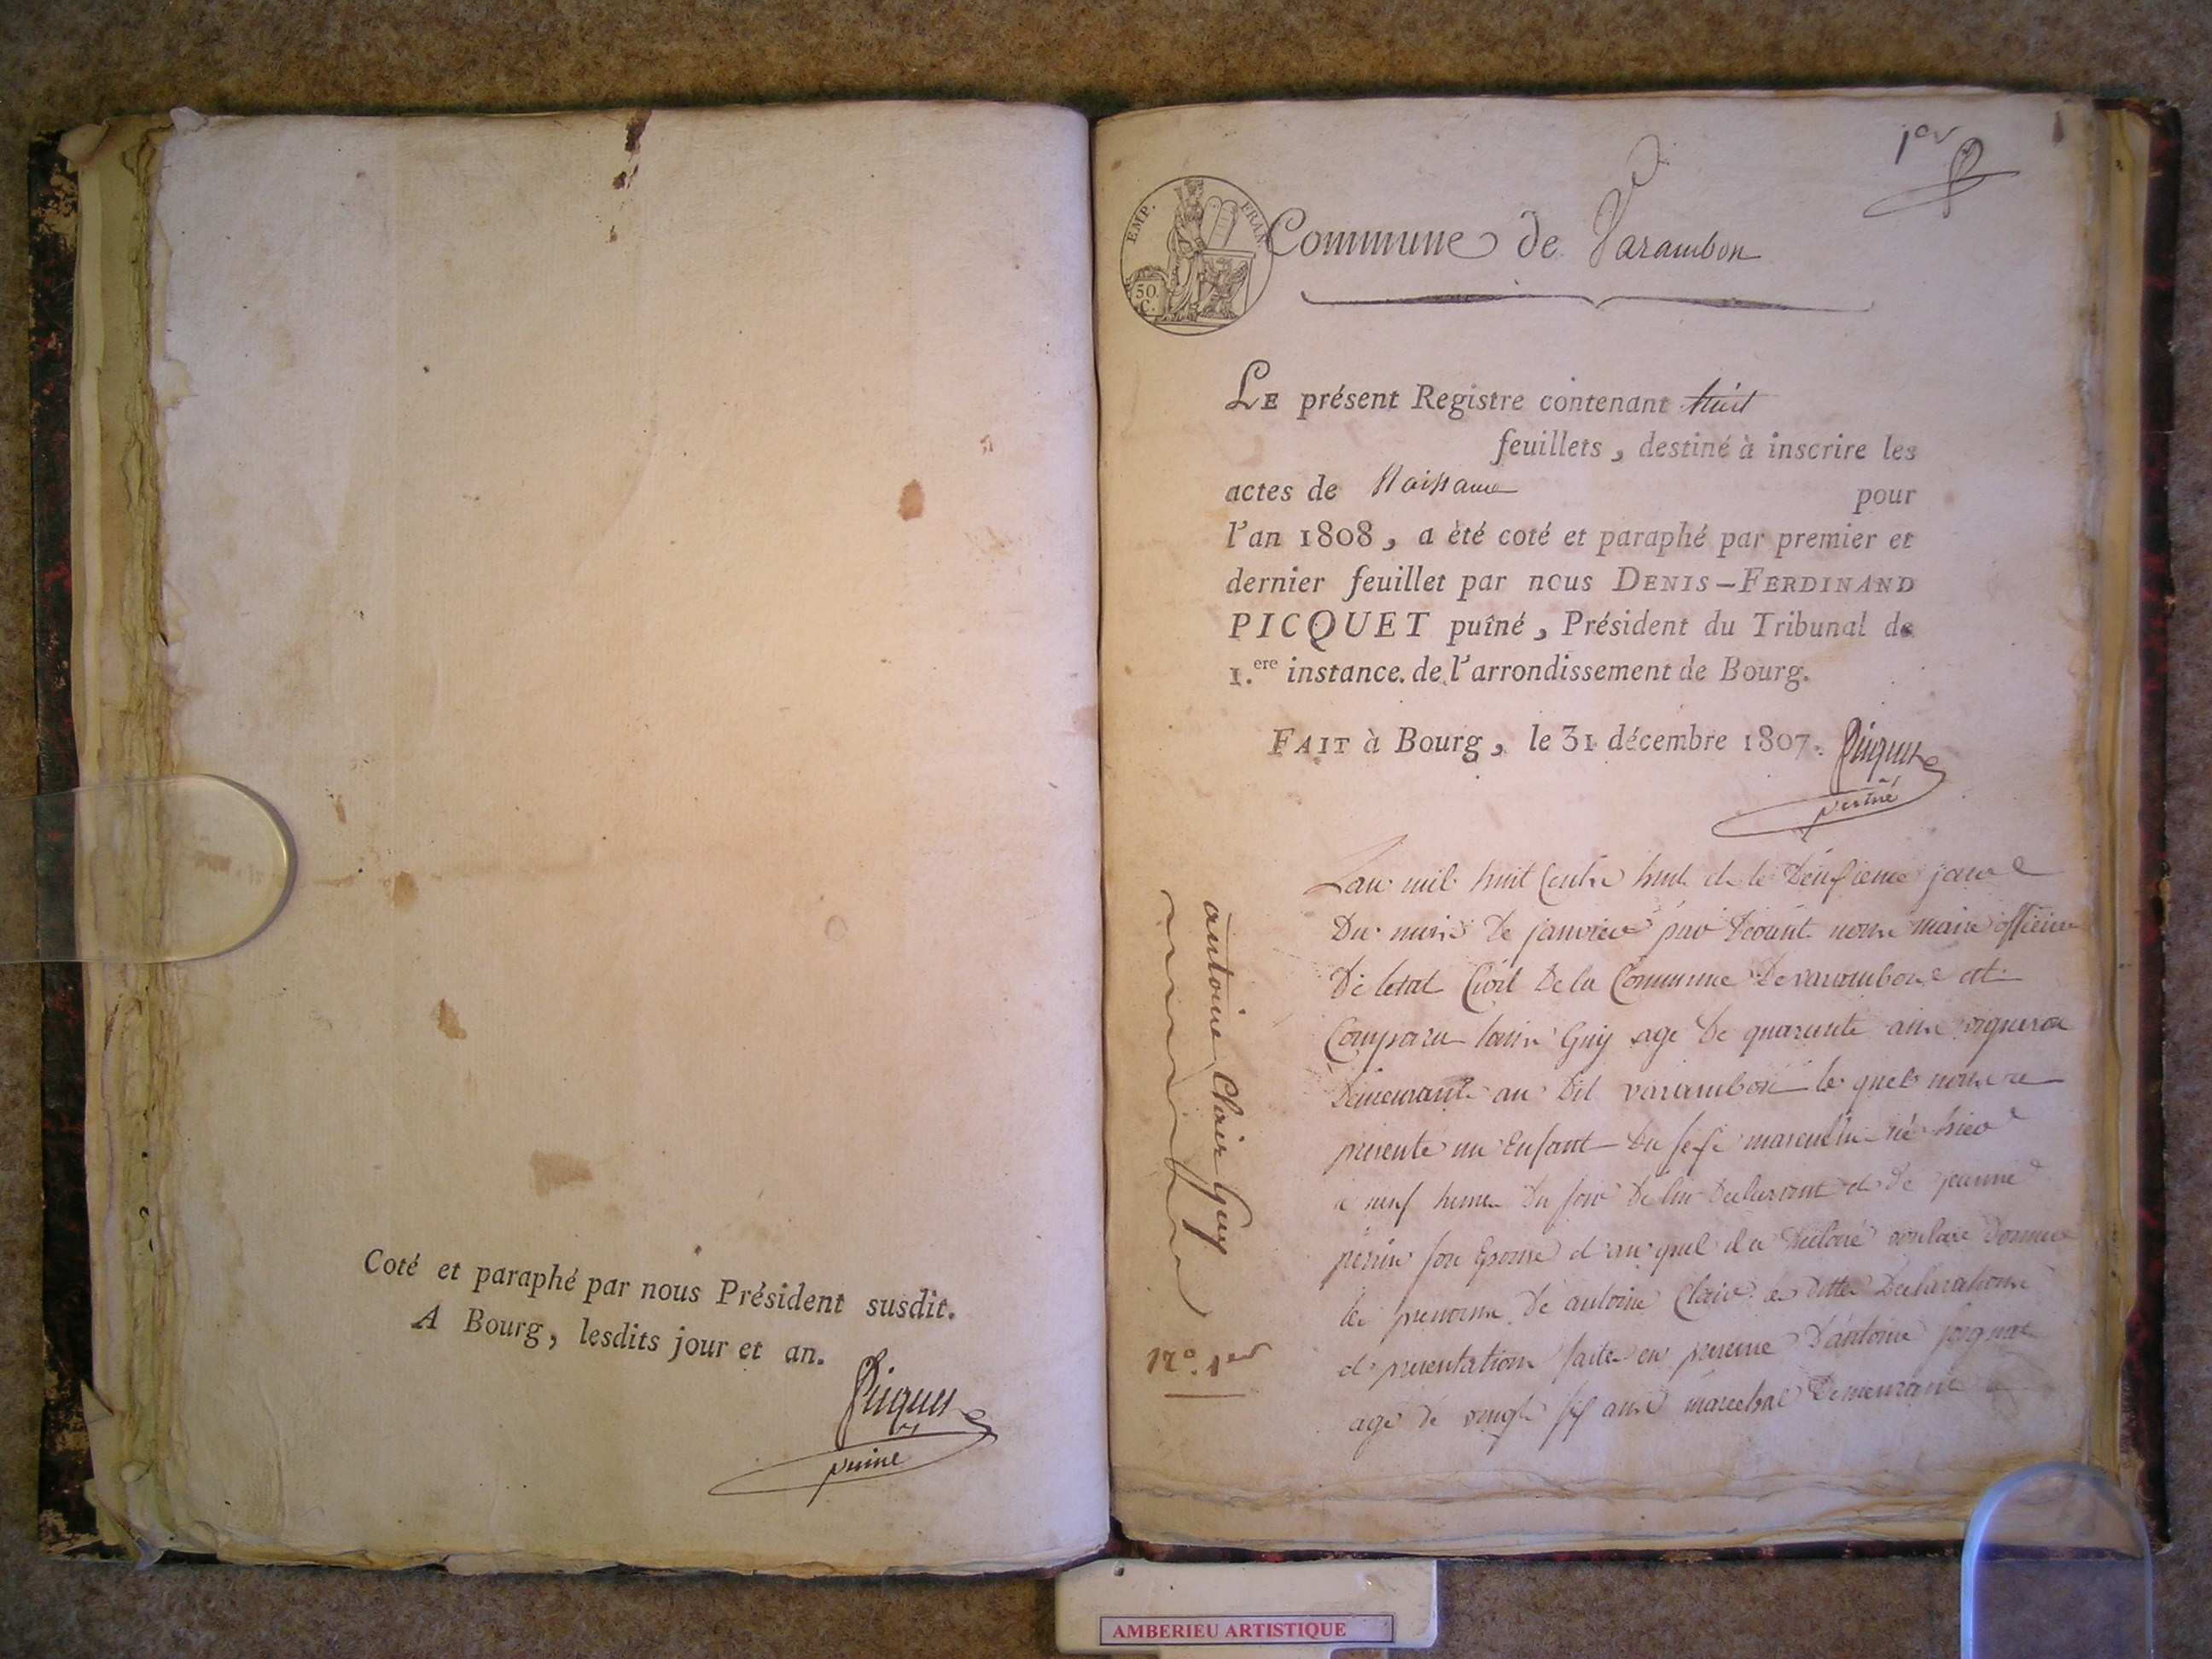 Coté et paraphé par nous Président susdit.
A Bourg, lesdits jour et an.
Picquet
puiné
1er
EMP. FRAN.
50 C.
Commune de Varambon
LE présent Registre contenant huit
feuillets, destiné à inscrire les
actes de Naissance pour
l'an 1808, a été coté et paraphé par premier et
dernier feuillet par nous DENIS-FERDINAND
PICQUET puîné, Président du Tribunal de
1.ere instance de l'arrondissement de Bourg.
FAIT à Bourg, le 31 décembre 1807.
Picquet
puiné
antoine Clair Guy
N.º 1er
Lan mil huit Cents huit et le deusieme jour
Du mois De janvier par devant nous maire officier
De letat Civil De la Commune De varambon est
Comparu Guy age De quarante ans vigneron
Demeurant au Dit varambon le quel nous a
presente un Enfant Du sexe masculin né hier
a neuf heures Du soir De lui Declarant et De jeanne
perrin son Epouse et au quel il a Declaré vouloir Donner
les prenoms De antoine Clair les dittes Declarations
et presentation faites en presence D'antoine
age de vingt six ans marechal Demeurant
AMBERIEU ARTISTIQUE